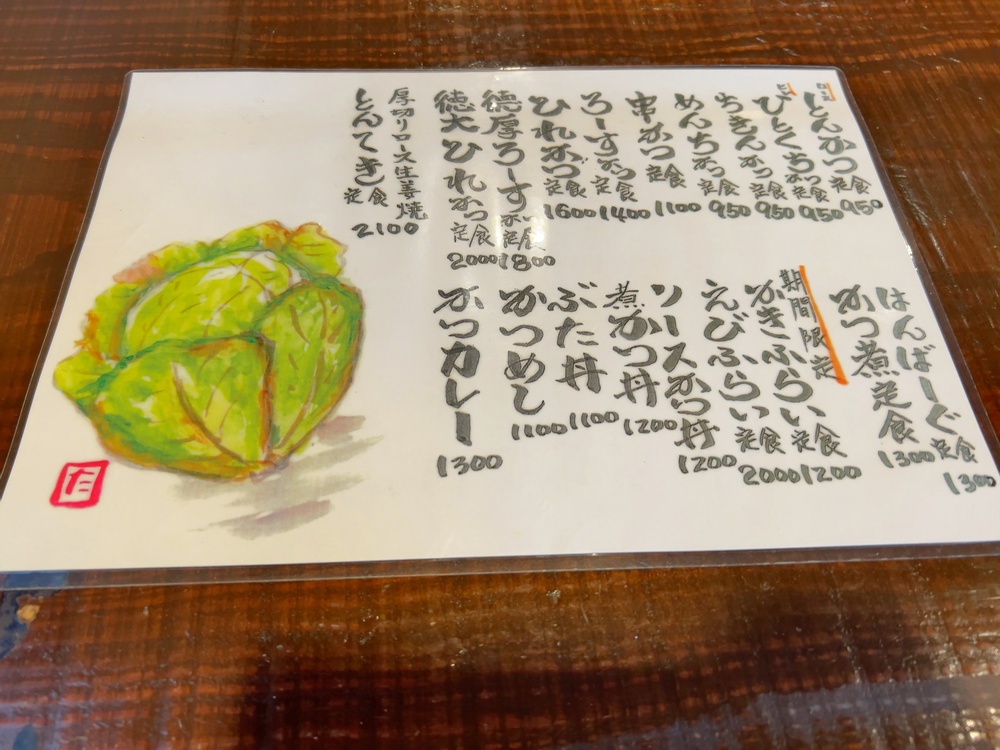 とんかつ定食 950
ひとくちかつ定食 950
ちきんかつ定食 950
めんちかつ定食 950
串かつ定食 1100
ろーすかつ定食 1400
ひれかつ定食 1600
徳厚ろーすかつ定食 1800
徳大ひれかつ定食 2000
厚切りロース生姜焼
とんてき定食 2100
はんばーぐ定食 1300
かつ煮定食 1300
期間限定
かきふらい定食 1200
えびふらい定食 2000
ソースかつ丼 1200
煮かつ丼 1200
ぶた丼 1100
かつめし 1100
かつカレー 1300